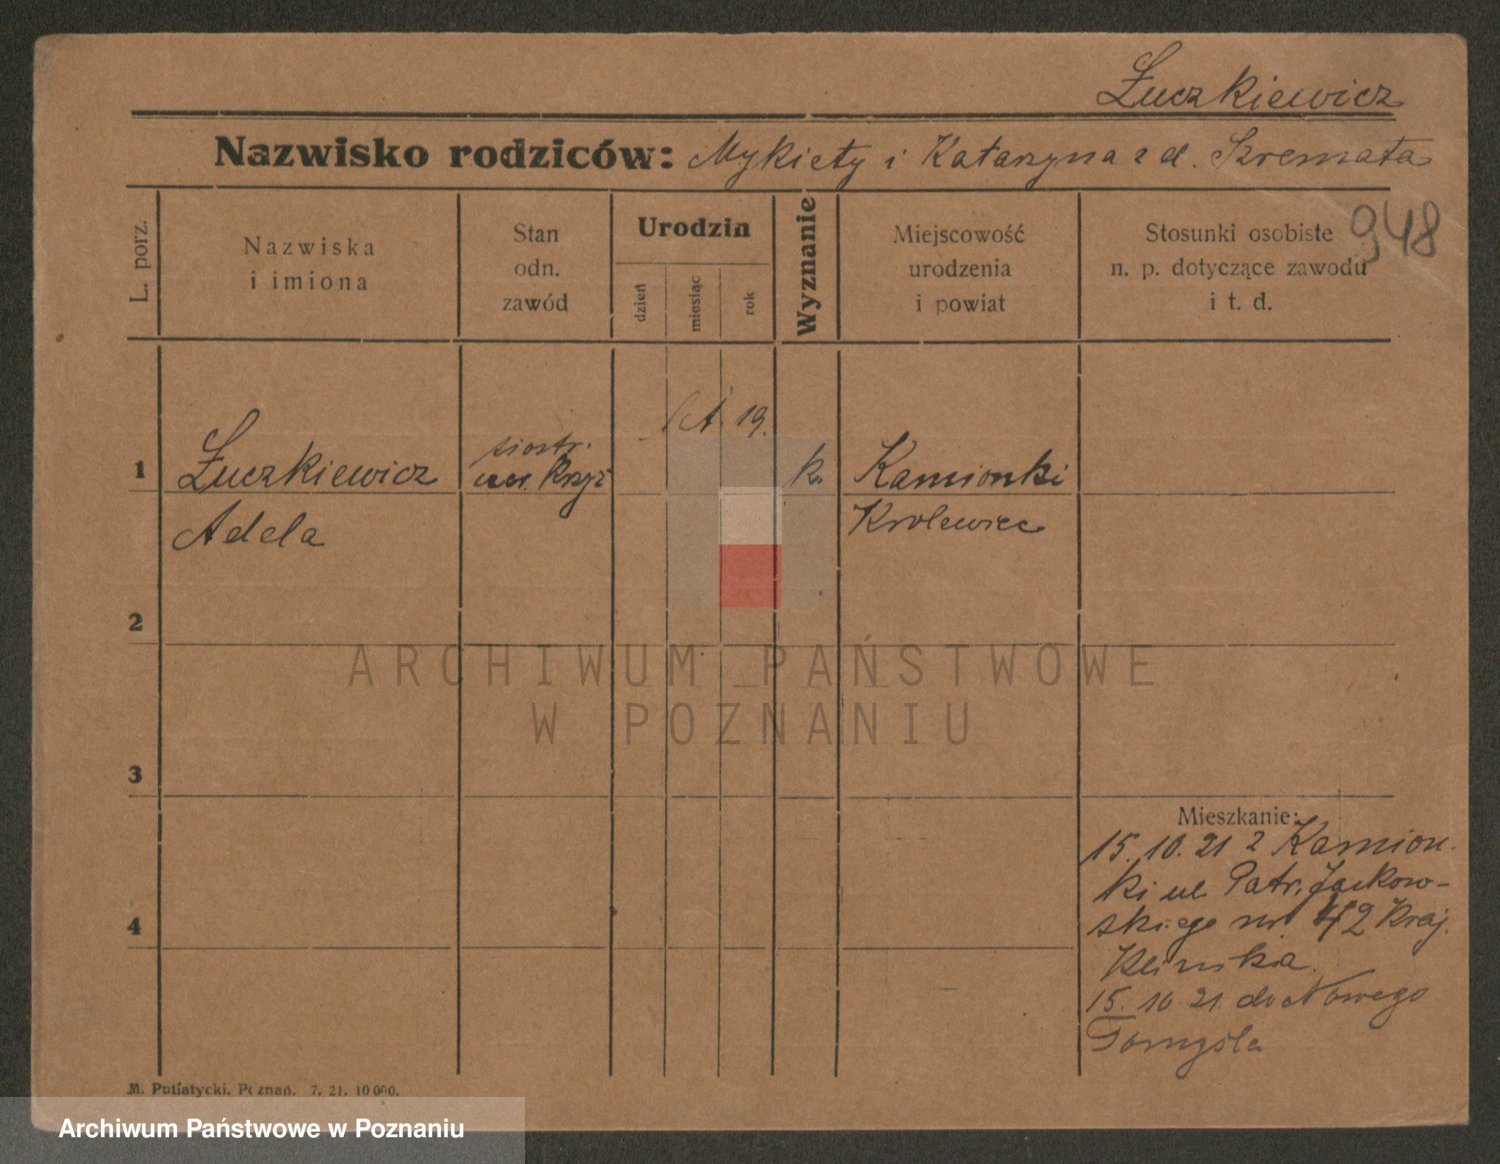 Łuczkiewicz
Nazwisko rodziców: Mykiety i Katarzyna z d. Szremata
948
L. porz.
Nazwiska
i imiona
Stan
odn.
zawód
Urodzin
dzień
miesiąc
rok
Wyznanie
Miejscowość
urodzenia
i powiat
Stosunki osobiste
n. p. dotyczące zawodu
i t. d.
19.
1
Łuczkiewicz
siostr.
k.
Kamionki
Adela
Królewiec
2
ARCHIWUM PAŃSTWOWE
W POZNANIU
3
Mieszkanie:
15. 10. 21 z Kamion-
ki ul. Patr. Jackow-
4
skiego nr 42 Kraj.
Klinika
15. 10. 21. do Nowego
Tomyśla
M. Putiatycki, Poznań. 7. 21. 10 000.
Archiwum Państwowe w Poznaniu